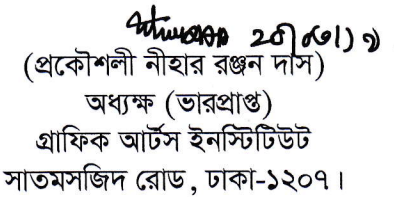 (প্রকৌশলী নীহার রঞ্জন দাস)
অধ্যক্ষ (ভারপ্রাপ্ত)
গ্রাফিক আর্টস ইনস্টিটিউট
সাতমসজিদ রোড, ঢাকা-১২০৭।